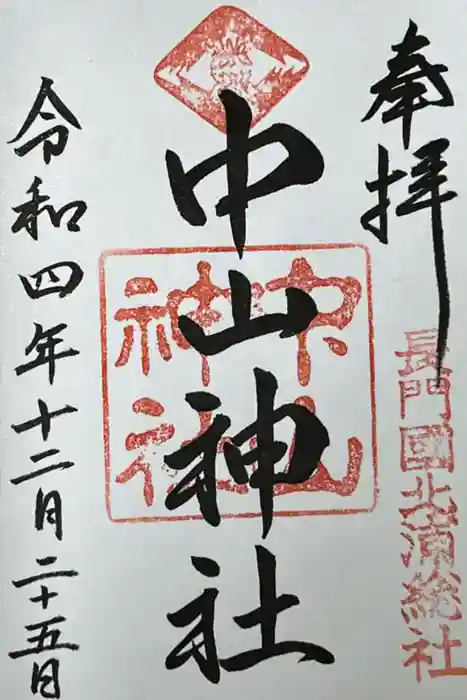 奉拝
長門國北浦総社
中山神社
中山神社
令和四年十二月二十五日